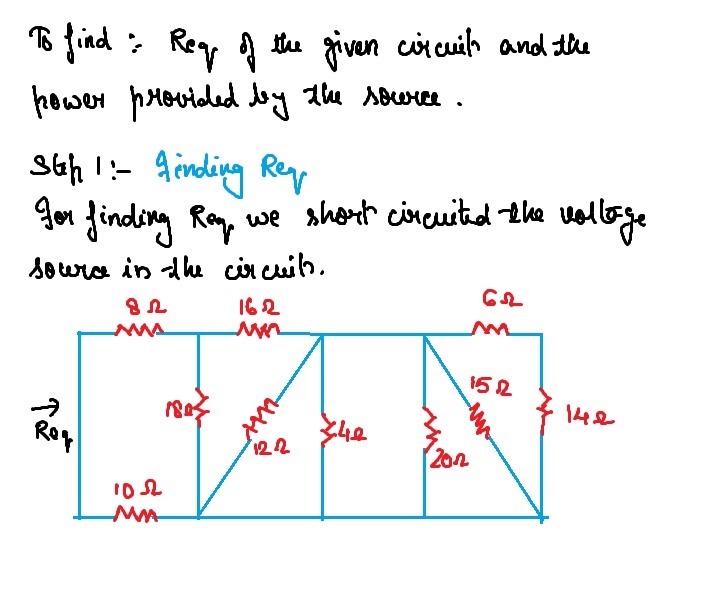 To find :- Req of the given circuit and the
power provided by the source .
Step 1 :- Finding Req
For finding Req we short circuited the voltage
source in the circuit.
8 Ω 16 Ω 6 Ω
18Ω 12 Ω 4Ω 20Ω 15 Ω 14 Ω
→
Req
10 Ω